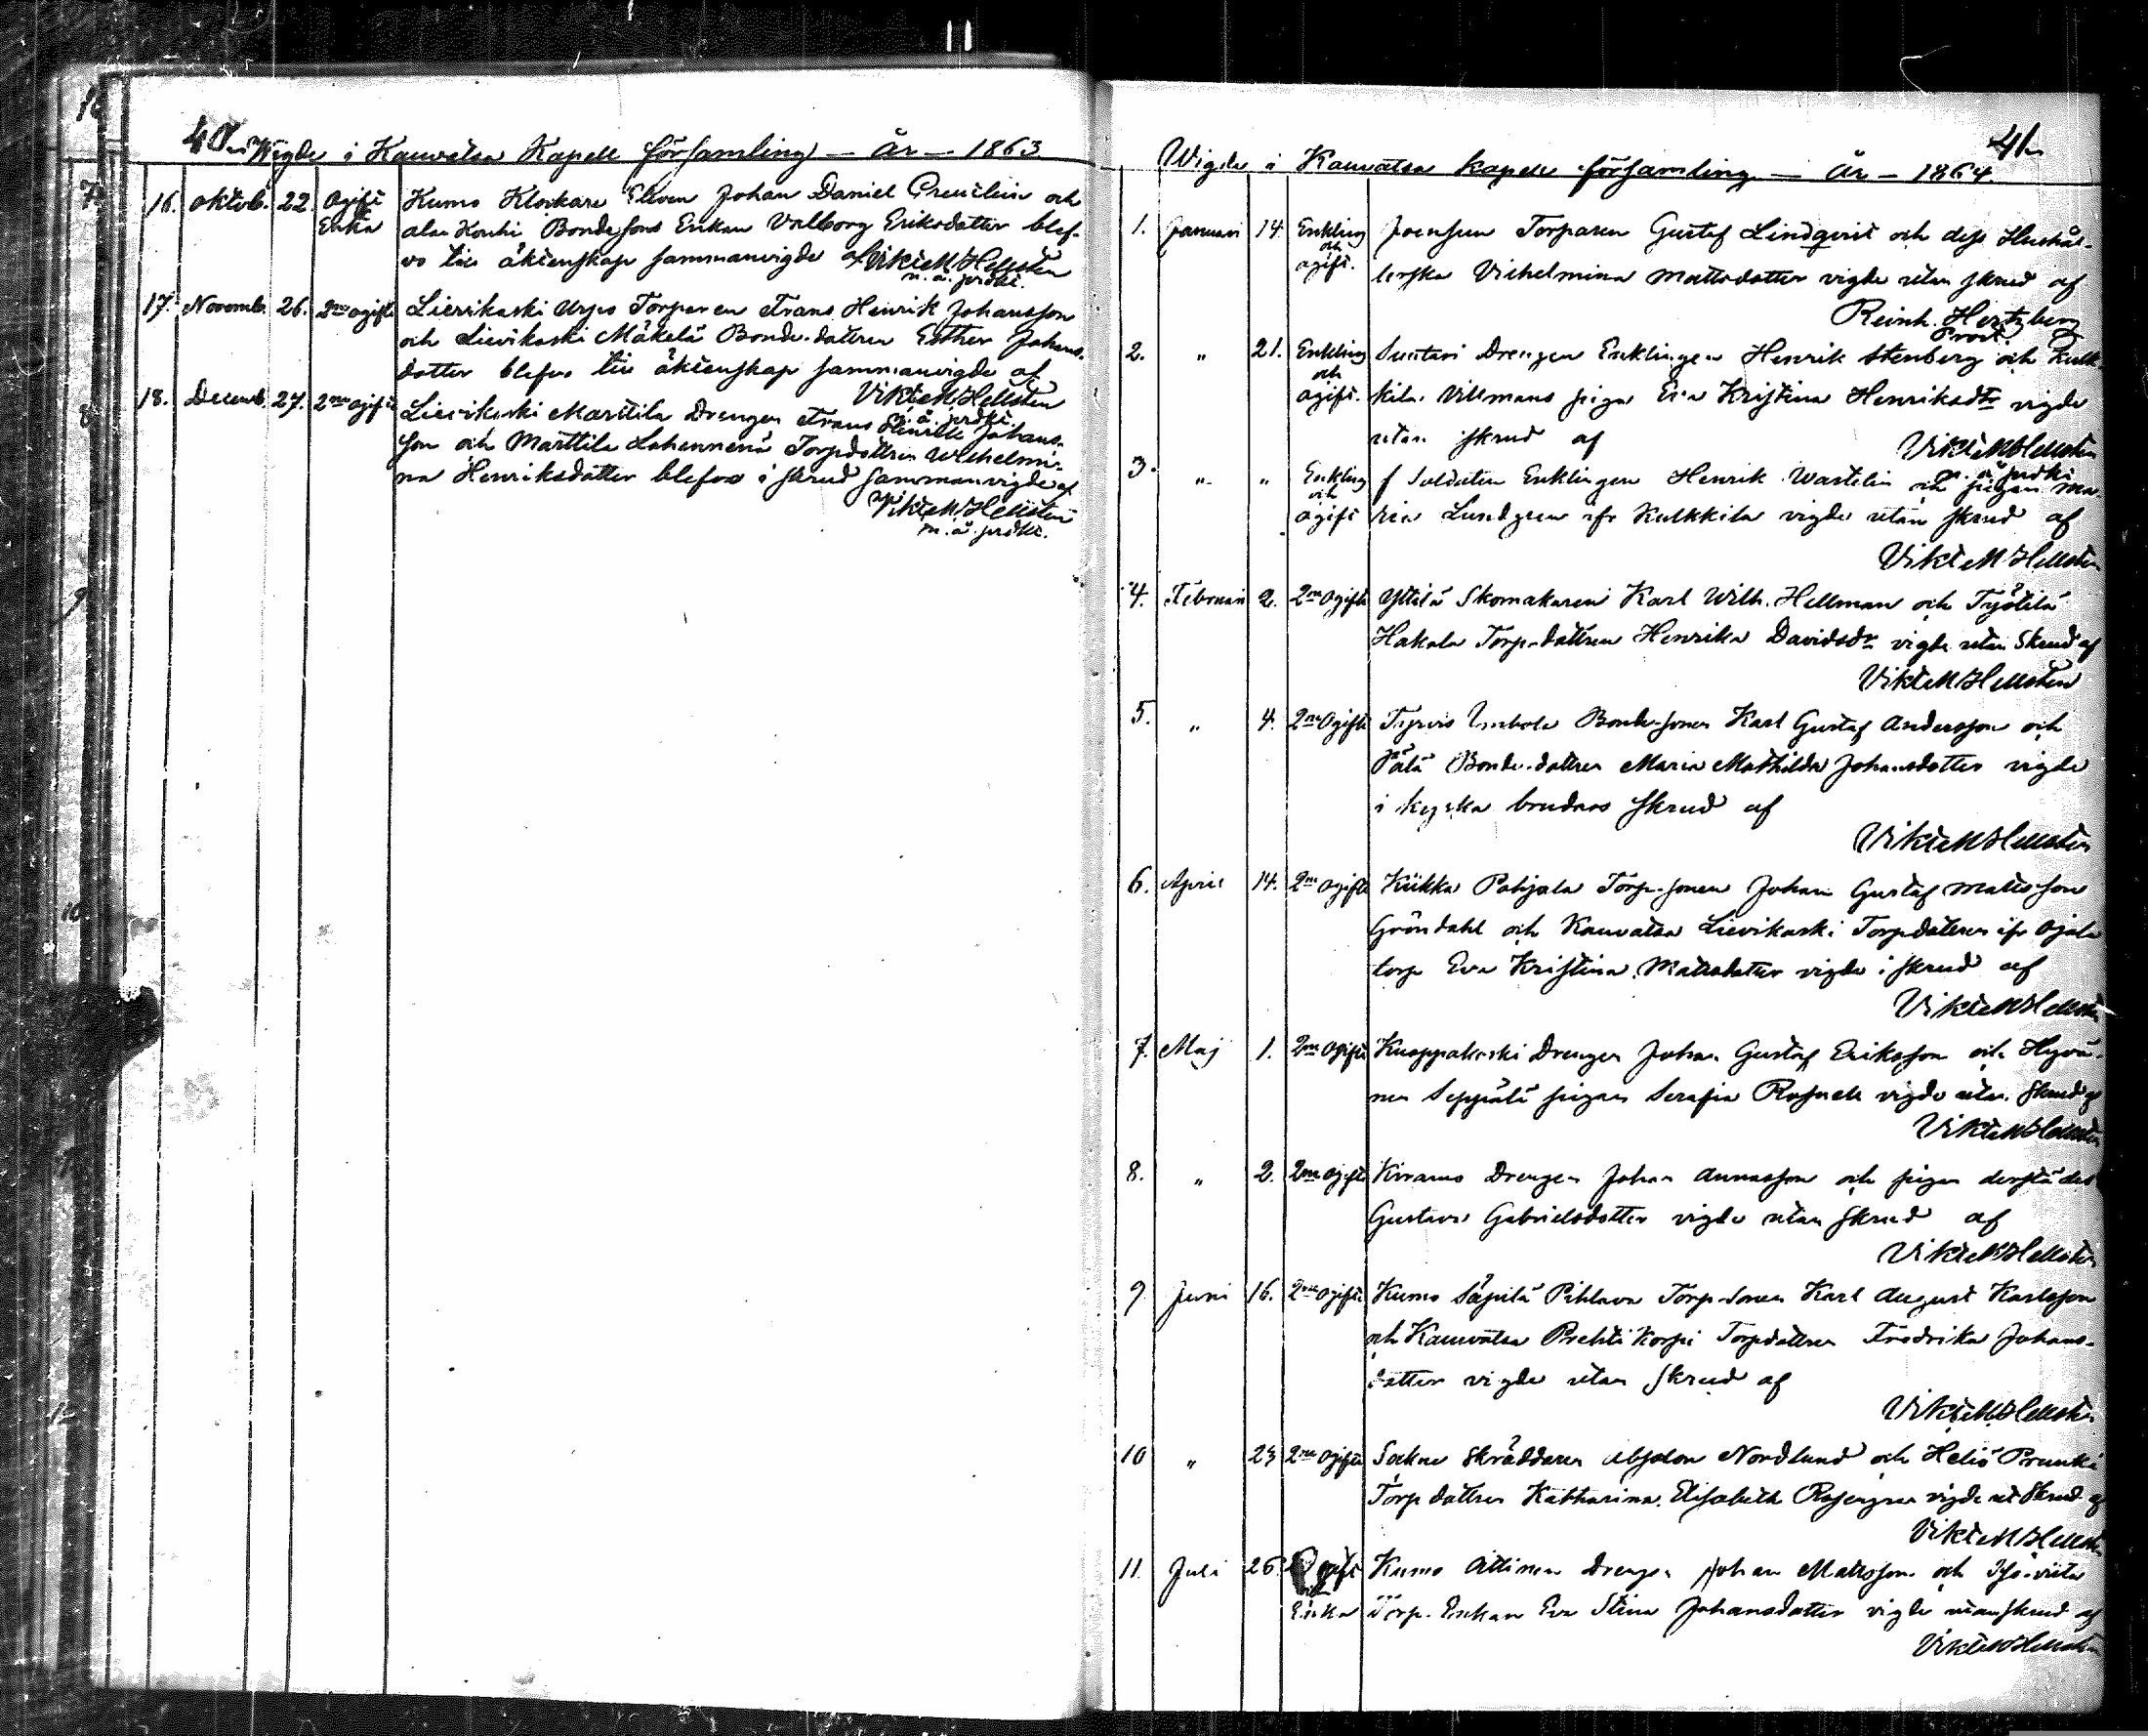 40.
Wigde i Kauvatsa Kapell församling — År — 1863
16. Oktob. 22. Ogift Kumo Klockare Eleven Johan Daniel och
Enka Bondesons Enkan Valborg Eriksdotter blef-
vo till äktenskap sammanvigde af Vikt. M Hellsten
n. å. prdkt.
17. Novemb. 26. 2ne ogifte Lievikoski Uspo Torparen Frans Henrik Johansson
och Lievikoski Mäkelä Bonde-dottren Esther Johans-
dotter blefvo till äktenskap sammanvigde af
Vikt. M Hellsten
n. å. prdkt.
18. Decemb. 27. 2ne ogifte Lievikoski Marttila Drengen Frans Henrik Johans-
son och Marttila Lahennenä Torpdottren Wilhelmi-
na Henriksdotter blefvo i skrud sammanvigde af
Vikt. M Hellsten
n. å. prdkt.
41.
Wigde i Kauvatsa kapell församling — År — 1864.
1. Januari 14. Enkling Joensuu Torparen Gustaf Lindqvist och dess Hushål-
och
ogift. lerska Vilhelmina Mattsdotter vigde utan skrud af
Reinh. Hertzberg
Prost.
2. " 21. Enkling Suntari Drengen Enklingen Henrik Stenberg och Kulk-
och
ogift. kila Villmans pigan Eva Kristina Henriksdtr vigde
utan skrud af Vikt. M Hellsten
n. å. prdkt.
3. " " Enkling f Soldaten Enklingen Henrik Wastelin och pigan Ma-
och
ogift ria Lundgren ifr Kulkkila vigde utan skrud af
Vikt. M Hellsten
4. Februari 2. 2ne Ogifte Yttilä Skomakaren Karl Wilh. Hellman och Työtilä
Hakala Torp-dottren Henrika Davidsdr vigde utan Skrud af
Vikt. M Hellsten
5. " 4. 2ne Ogifte Bonde-sonen Karl Gustaf Andersson och
Pälä Bonde-dottren Maria Mathilda Johansdotter vigde
i kyrka brudens skrud af
Vikt. M Hellsten
6. April 14. 2ne ogifte Kiikka Pohjala Torp-sonen Johan Gustaf Mattsson
Gröndahl och Kauvatsa Lievikoski Torpdottren ifr Ojala
torp Eva Kristina Mattsdotter vigde i skrud af
Vikt. M Hellsten
7. Maj 1. 2ne Ogifte Kuoppakoski Drengen Johan Gustaf Eriksson och Hyvä-
nen Seppälä pigan Serafia Rosnell vigde utan Skrud af
Vikt. M Hellsten
8. " 2. 2ne Ogifte Kiramo Drengen Johan Annasson och pigan derstädes
Gustava Gabrielsdotter vigde utan skrud af
Vikt. M Hellsten
9 Juni 16. 2ne Ogifte Kumo Säpilä Pihlava Torp-Sonen Karl August Karlsson
och Kauvatsa Prehti Korpi Torpdottren Fredrika Johans-
dotter vigde utan Skrud af
Vikt. M Hellsten
10 " 23 2ne Ogifte Sockne Skräddaren Absalon Nordlund och Heliö Prunki
Torp dottren Katharina Elisabeth Rosengren vigde ut Skrud af
Vikt. M Hellsten
11. Juli 26. Ogift Kumo Aittinen Drengen Johan Mattsson och Iso-viita
och
Enka Torp. Enkan Eva Stina Johansdotter vigde utan skrud af
Vikt. M Hellsten